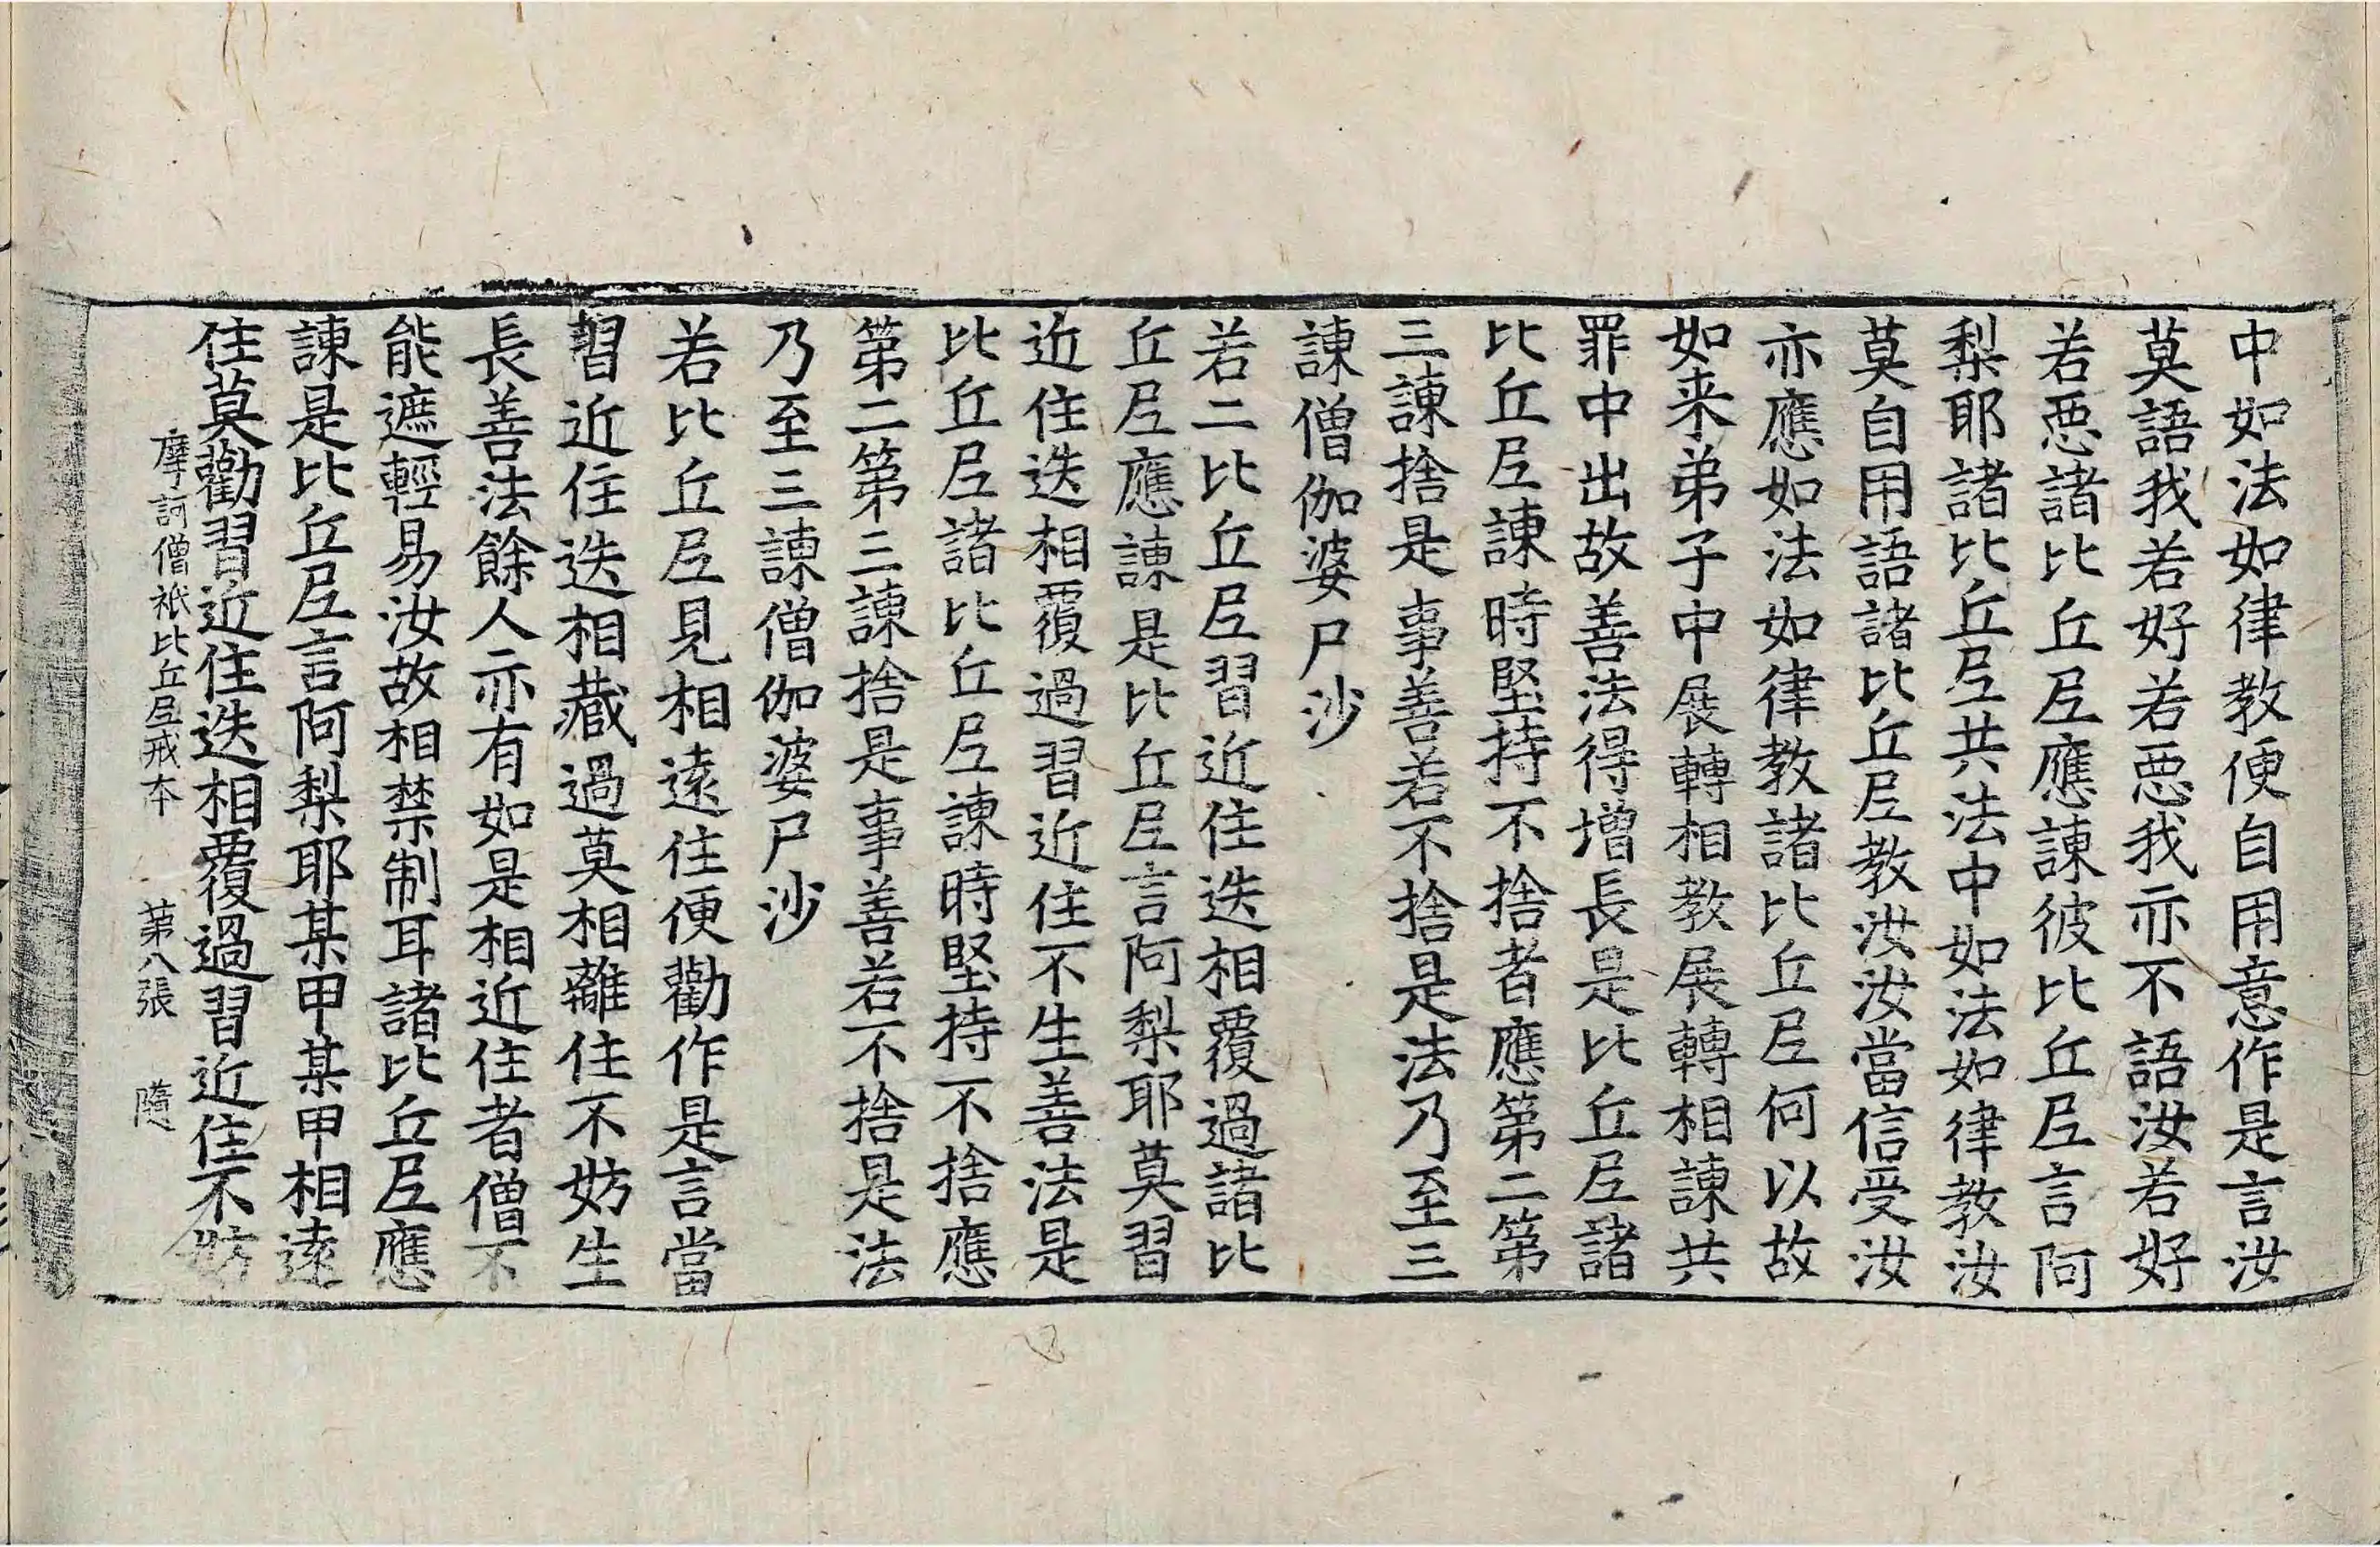 中如法如律教便自用意作是言汝
莫語我若好若惡我亦不語汝若好
若惡諸比丘尼應諫彼比丘尼言阿
梨耶諸比丘尼共法中如法如律教汝
莫自用語諸比丘尼教汝汝當信受汝
亦應如法如律教諸比丘尼何以故
如来弟子中展轉相教展轉相諫共
罪中出故善法得增長是比丘尼諸
比丘尼諫時堅持不捨者應第二第
三諫捨是事善若不捨是法乃至三
諫僧伽婆尸沙
若二比丘尼習近住迭相覆過諸比
丘尼應諫是比丘尼言阿梨耶莫習
近住迭相覆過習近住不生善法是
比丘尼諸比丘尼諫時堅持不捨應
第二第三諫捨是事善若不捨是法
乃至三諫僧伽婆尸沙
若比丘尼見相遠住便勸作是言當
習近住迭相藏過莫相離住不妨生
長善法餘人亦有如是相近住者僧不
能遮輕易汝故相禁制耳諸比丘尼應
諫是比丘尼言阿梨耶某甲某甲相遠
住莫勸習近住迭相覆過習近住不妨
摩訶僧祇比丘尼戒本 第八張 隨